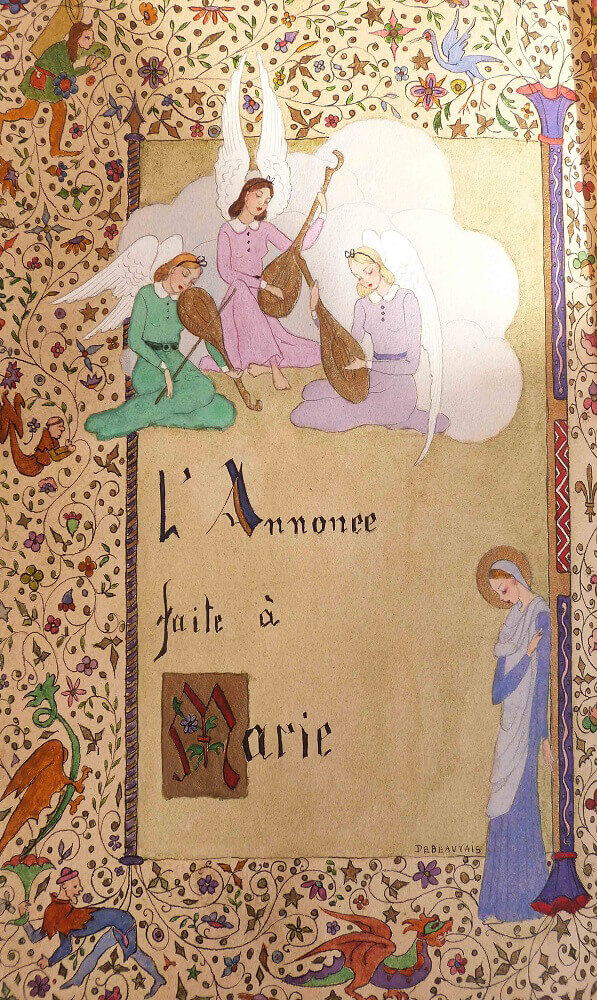 L'Annonce
faite à
Marie
DEBEAUVAIS